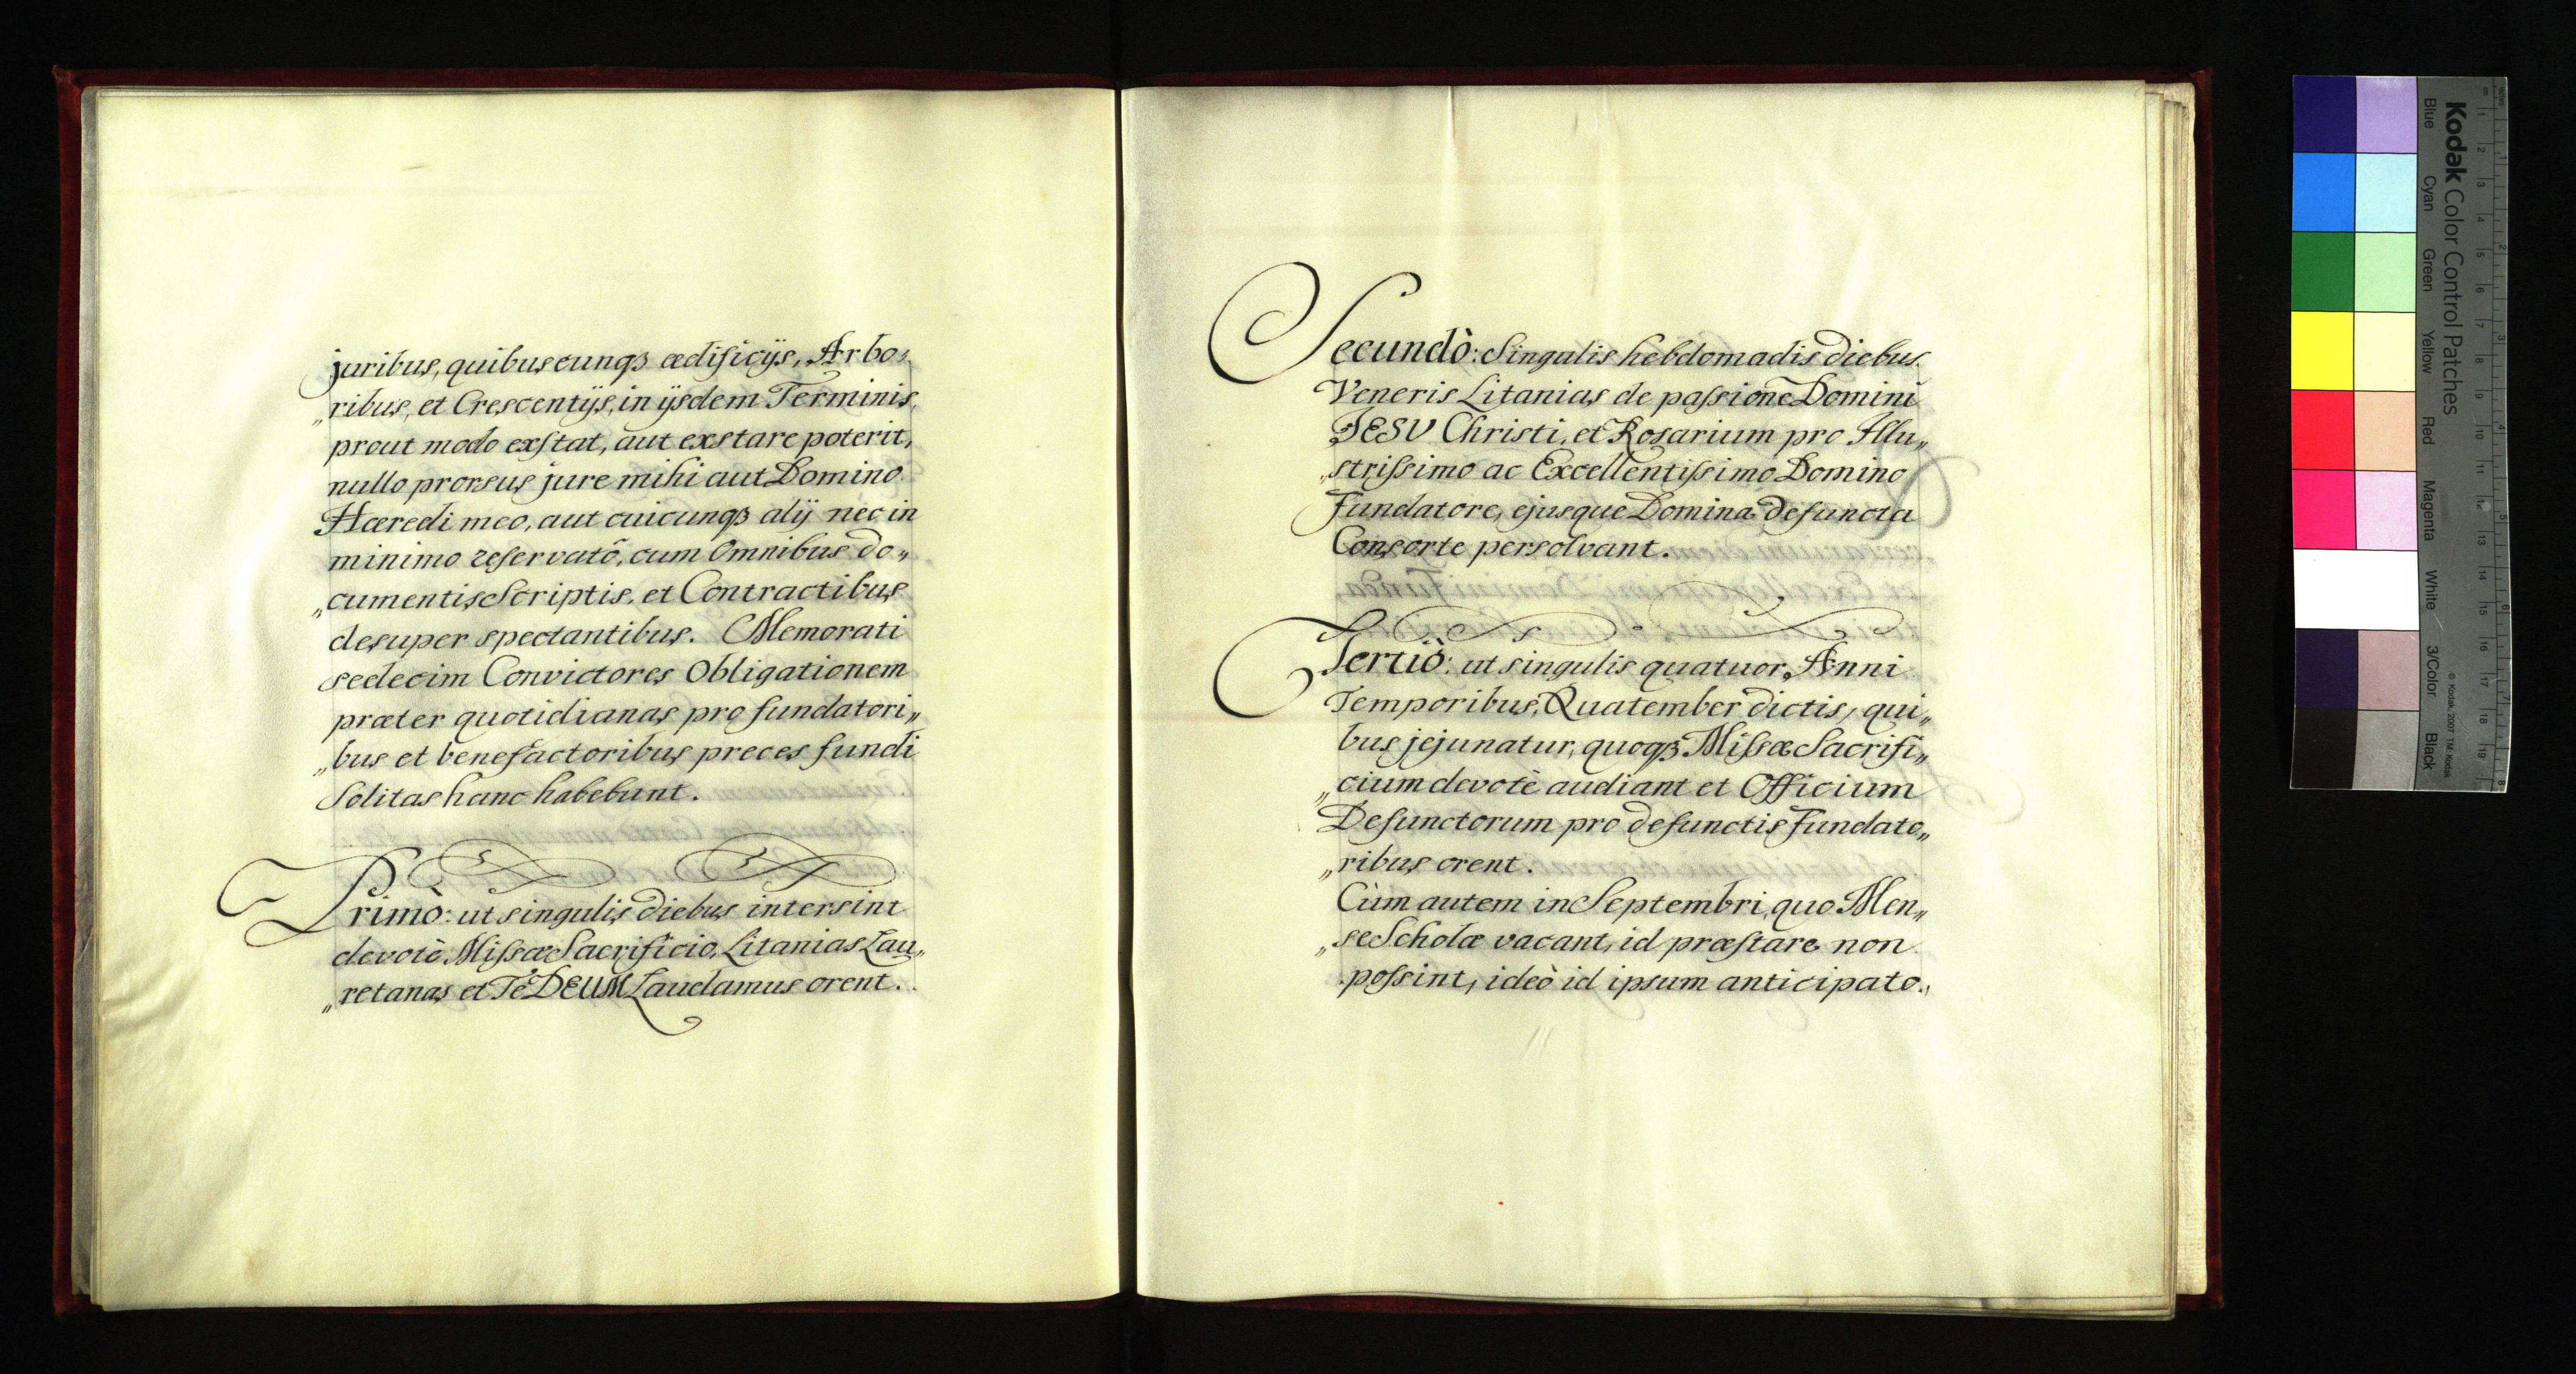 juribus, quibuscunqꝫ ædificijs, Arbo„
„ribus, et Crescentijs, in ijsdem Terminis,
prout modo exstat, aut exstare poterit,
nullo prorsus jure mihi aut Domino
Hæredi meo, aut cuicunqꝫ alij nec in
minimo reservatô, cum Omnibus do„
„cumentis Scriptis, et Contractibus
desuper spectantibus. Memorati
sedecim Convictores Obligationem
præter quotidianas pro fundatori„
„bus et benefactoribus preces fundi
Solitas hanc habebunt.
Primò: ut singulis diebus intersint
devotè Missæ Sacrificio, Litanias Lau„
„retanas et Te DEUM Laudamus orent.
Secundò: Singulis hebdomadis diebus
Veneris Litanias de passione Domini
JESU Christi, et Rosarium pro Illu„
„strissimo ac Excellentissimo Domino
Fundatore, ejusque Domina defuncta
Consorte persolvant.
Tertiò: ut singulis quatuor Anni
Temporibus, Quatember dictis, qui„
bus jejunatur, quoqꝫ Missæ Sacrifi„
„cium devotè audiant et Officium
Defunctorum pro defunctis fundato„
„ribus orent.
Cùm autem in Septembri, quo Men„
„se Scholæ vacant, id præstare non
possint, ideò id ipsum anticipato
Kodak Color Control Patches
Blue Cyan Green Yellow Red Magenta White 3/Color Black
© Kodak, 2007 TM: Kodak